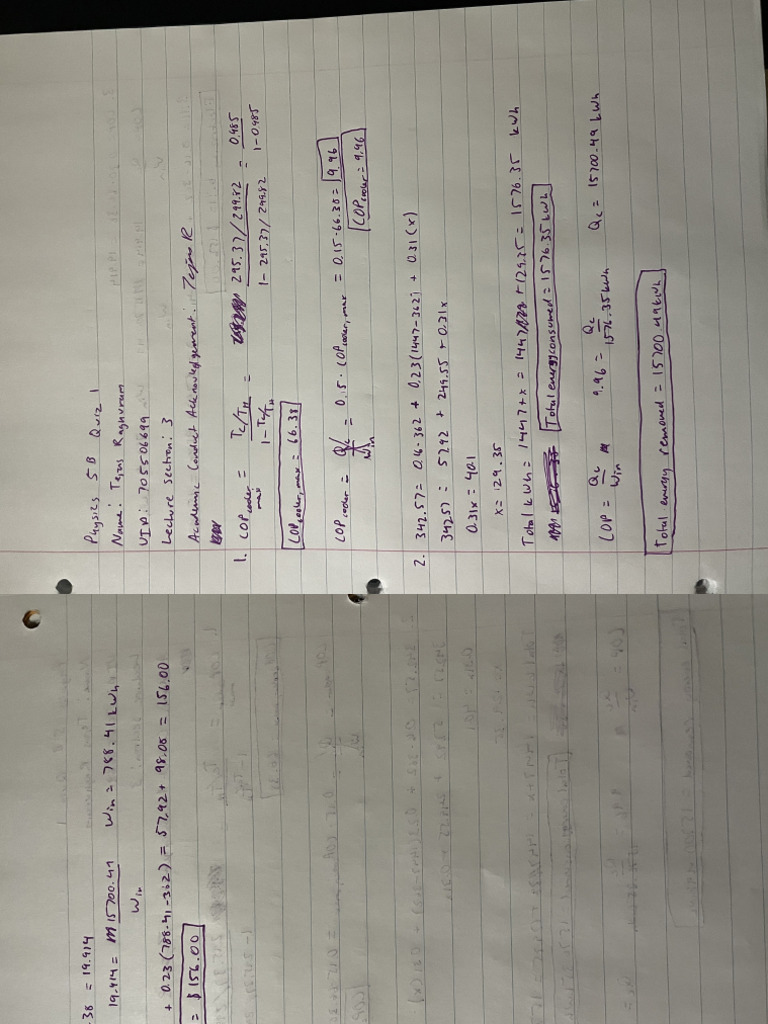 Physics 5B Quiz 1
Name: Tejas Raghuram
UID: 705506699
Lecture Section: 3
Academic Conduct Acknowledgement: Tejas R
1. COP cooler, max = Tc/TH / 1 - Tc/TH = 295.37/299.82 / 1 - 295.37/299.82 = 0.985 / 1 - 0.985
COP cooler, max = 66.38
COP cooler = Qc/Win = 0.15 · COP cooler, max = 0.15 · 66.38 = 9.96
COP cooler = 9.96
2. 342.57 = 0.16 · 362 + 0.23(1447 - 362) + 0.31(x)
342.57 = 57.92 + 249.55 + 0.31x
0.31x = 40.1
x = 129.35
Total kWh = 1447 + x = 1447 + 129.35 = 1576.35 kWh
Total energy consumed = 1576.35 kWh
COP = Qc/Win 9.96 = Qc/1576.35 kWh Qc = 15700.49 kWh
Total energy removed = 15700.49 kWh
.38 = 19.914
19.914 = 15700.49/Win Win = 788.41 kWh
+ 0.23(788.41 - 362) = 57.92 + 98.08 = 156.00
= $156.00